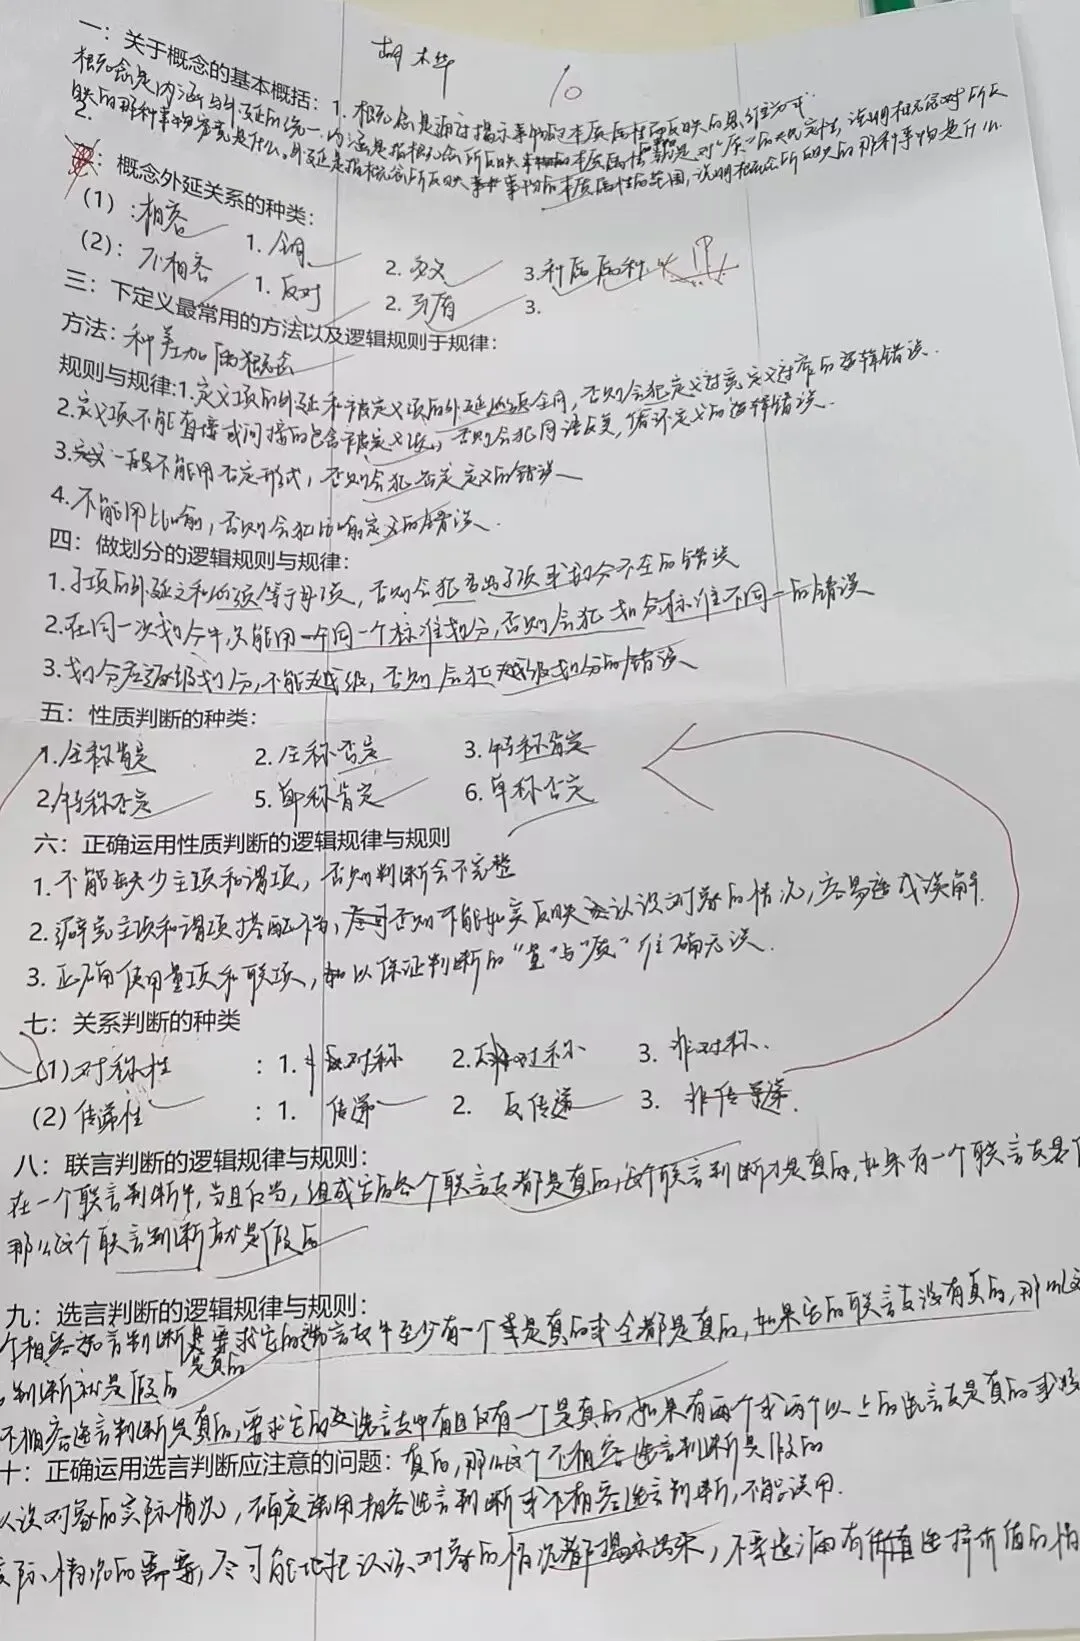 胡烨
10
一：关于概念的基本概括：1. 概念是通过揭示事物的本质属性而反映的思维方式.
概念是内涵与外延的统一.内涵是指概念所反映事物的本质属性 就是对"质"的规定性，说明概念对所反
映的那种事物究竟是什么.外延是指概念所反映事物的本质属性的范围，说明概念所反映的那种事物是什么.
2.
：概念外延关系的种类：
（1）:相容 1. 全同 2. 交叉 3.种属 属种
（2）：不相容 1. 反对 2. 矛盾 3.
三：下定义最常用的方法以及逻辑规则于规律：
方法：种差加属概念
规则与规律:1.定义项的外延和被定义项的外延必须全同，否则会犯定义过宽，定义过窄的逻辑错误.
2.定义项不能直接或间接的包含被定义项，否则会犯同语反复，循环定义的逻辑错误.
3.定义一般不能用否定形式，否则会犯否定定义的错误
4.不能用比喻，否则会犯比喻定义的错误.
四：做划分的逻辑规则与规律：
1.子项的外延之和必须等于母项，否则会犯多出子项或划分不全的错误
2.在同一次划分中只能用一个同一个标准划分，否则会犯划分标准不同一的错误
3.划分应逐级划分，不能越级，否则会犯越级划分的错误
五：性质判断的种类：
1.全称肯定 2. 全称否定 3.特称肯定
2.特称否定 5. 单称肯定 6. 单称否定
六：正确运用性质判断的逻辑规律与规则
1.不能缺少主项和谓项，否则判断会不完整
2. 避免主项和谓项搭配不当，否则不能如实反映认识对象的情况，容易造成误解.
3. 正确使用量项和联项，以保证判断的"量"与"质"准确无误.
七：关系判断的种类
(1)对称性 ：1. 对称 2. 对称 3. 非对称.
（2）传递性 ：1. 传递 2. 反传递 3. 非传递.
八：联言判断的逻辑规律与规则：
在一个联言判断中，当且仅当，组成它的各个联言支都是真的，每个联言判断才是真的，如果有一个联言支是
那么这个联言判断就是假的
九：选言判断的逻辑规律与规则：
个相容选言判断是真的 要求它的选言支中至少有一个是真的或全都是真的，如果它的联言支没有真的，那么这
判断就是假的
不相容选言判断是真的，要求它的选言支中有且仅有一个是真的，如果有两个或两个以上的选言支是真的或
十：正确运用选言判断应注意的问题：真的，那么这个不相容选言判断是假的
认识对象的实际情况，确定选用相容选言判断或不相容选言判断，不能误用.
实际情况的需要，尽可能地把认识对象的情况都揭示出来，不要遗漏有价值选择价值的情